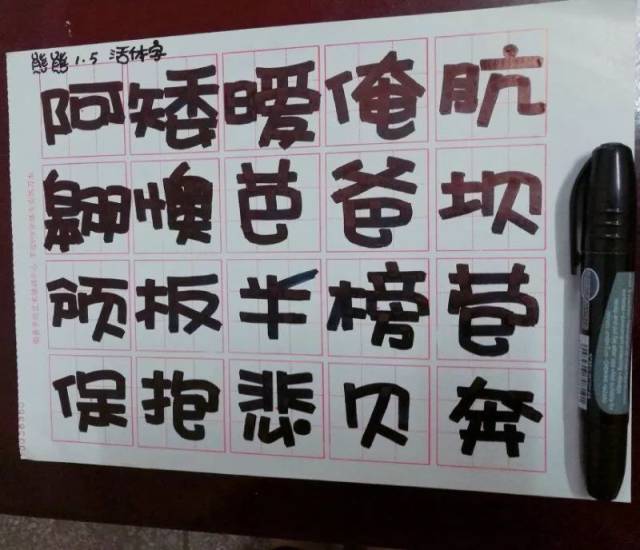 熊熊 1.5 活体字
阿矮暧俺肮
翱懊芭爸坝
颁板半榜苞
保抱悲贝奔